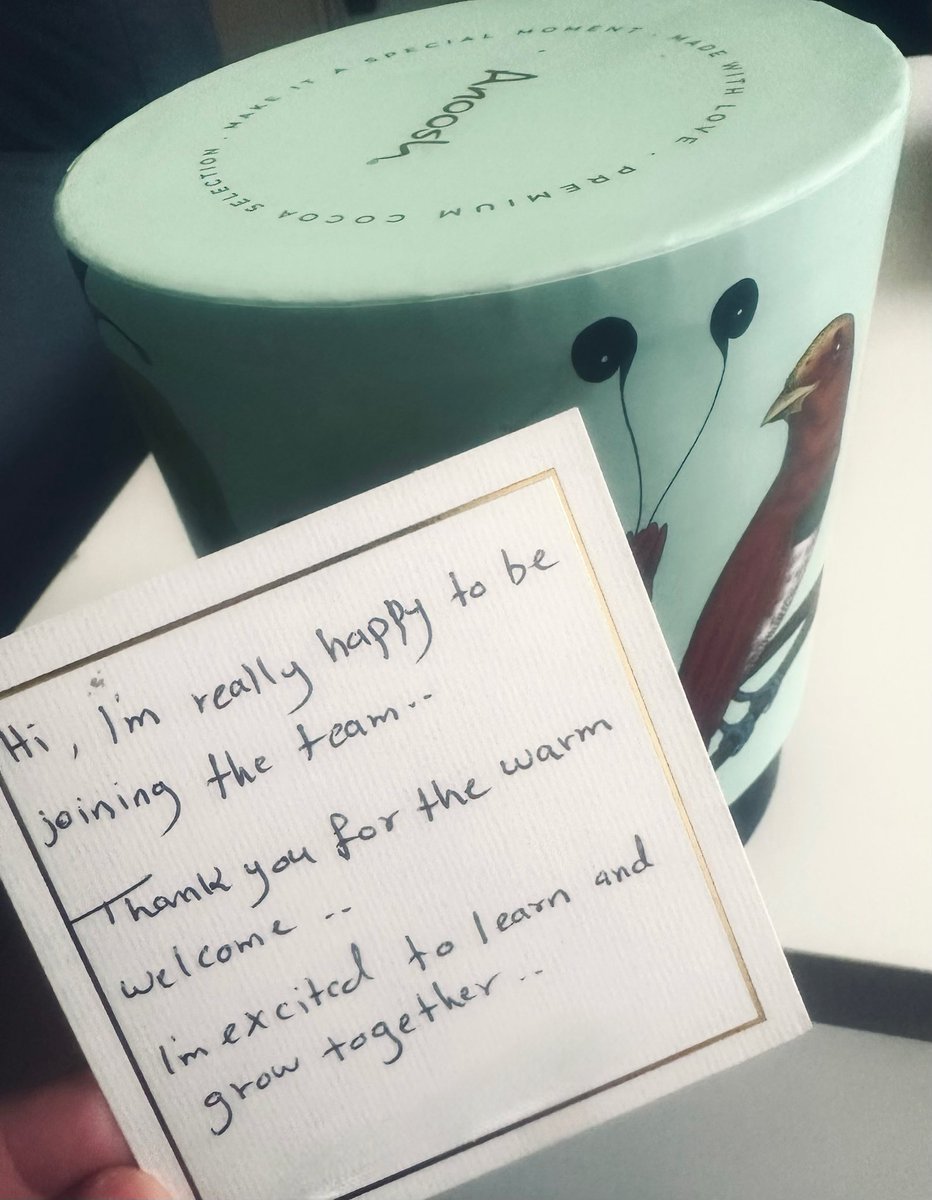 MAKE IT A SPECIAL MOMENT · MADE WITH LOVE · PREMIUM COCOA SELECTION ·
Anoosh
Hi, I'm really happy to be
joining the team..
Thank you for the warm
welcome ..
I'm excited to learn and
grow together..